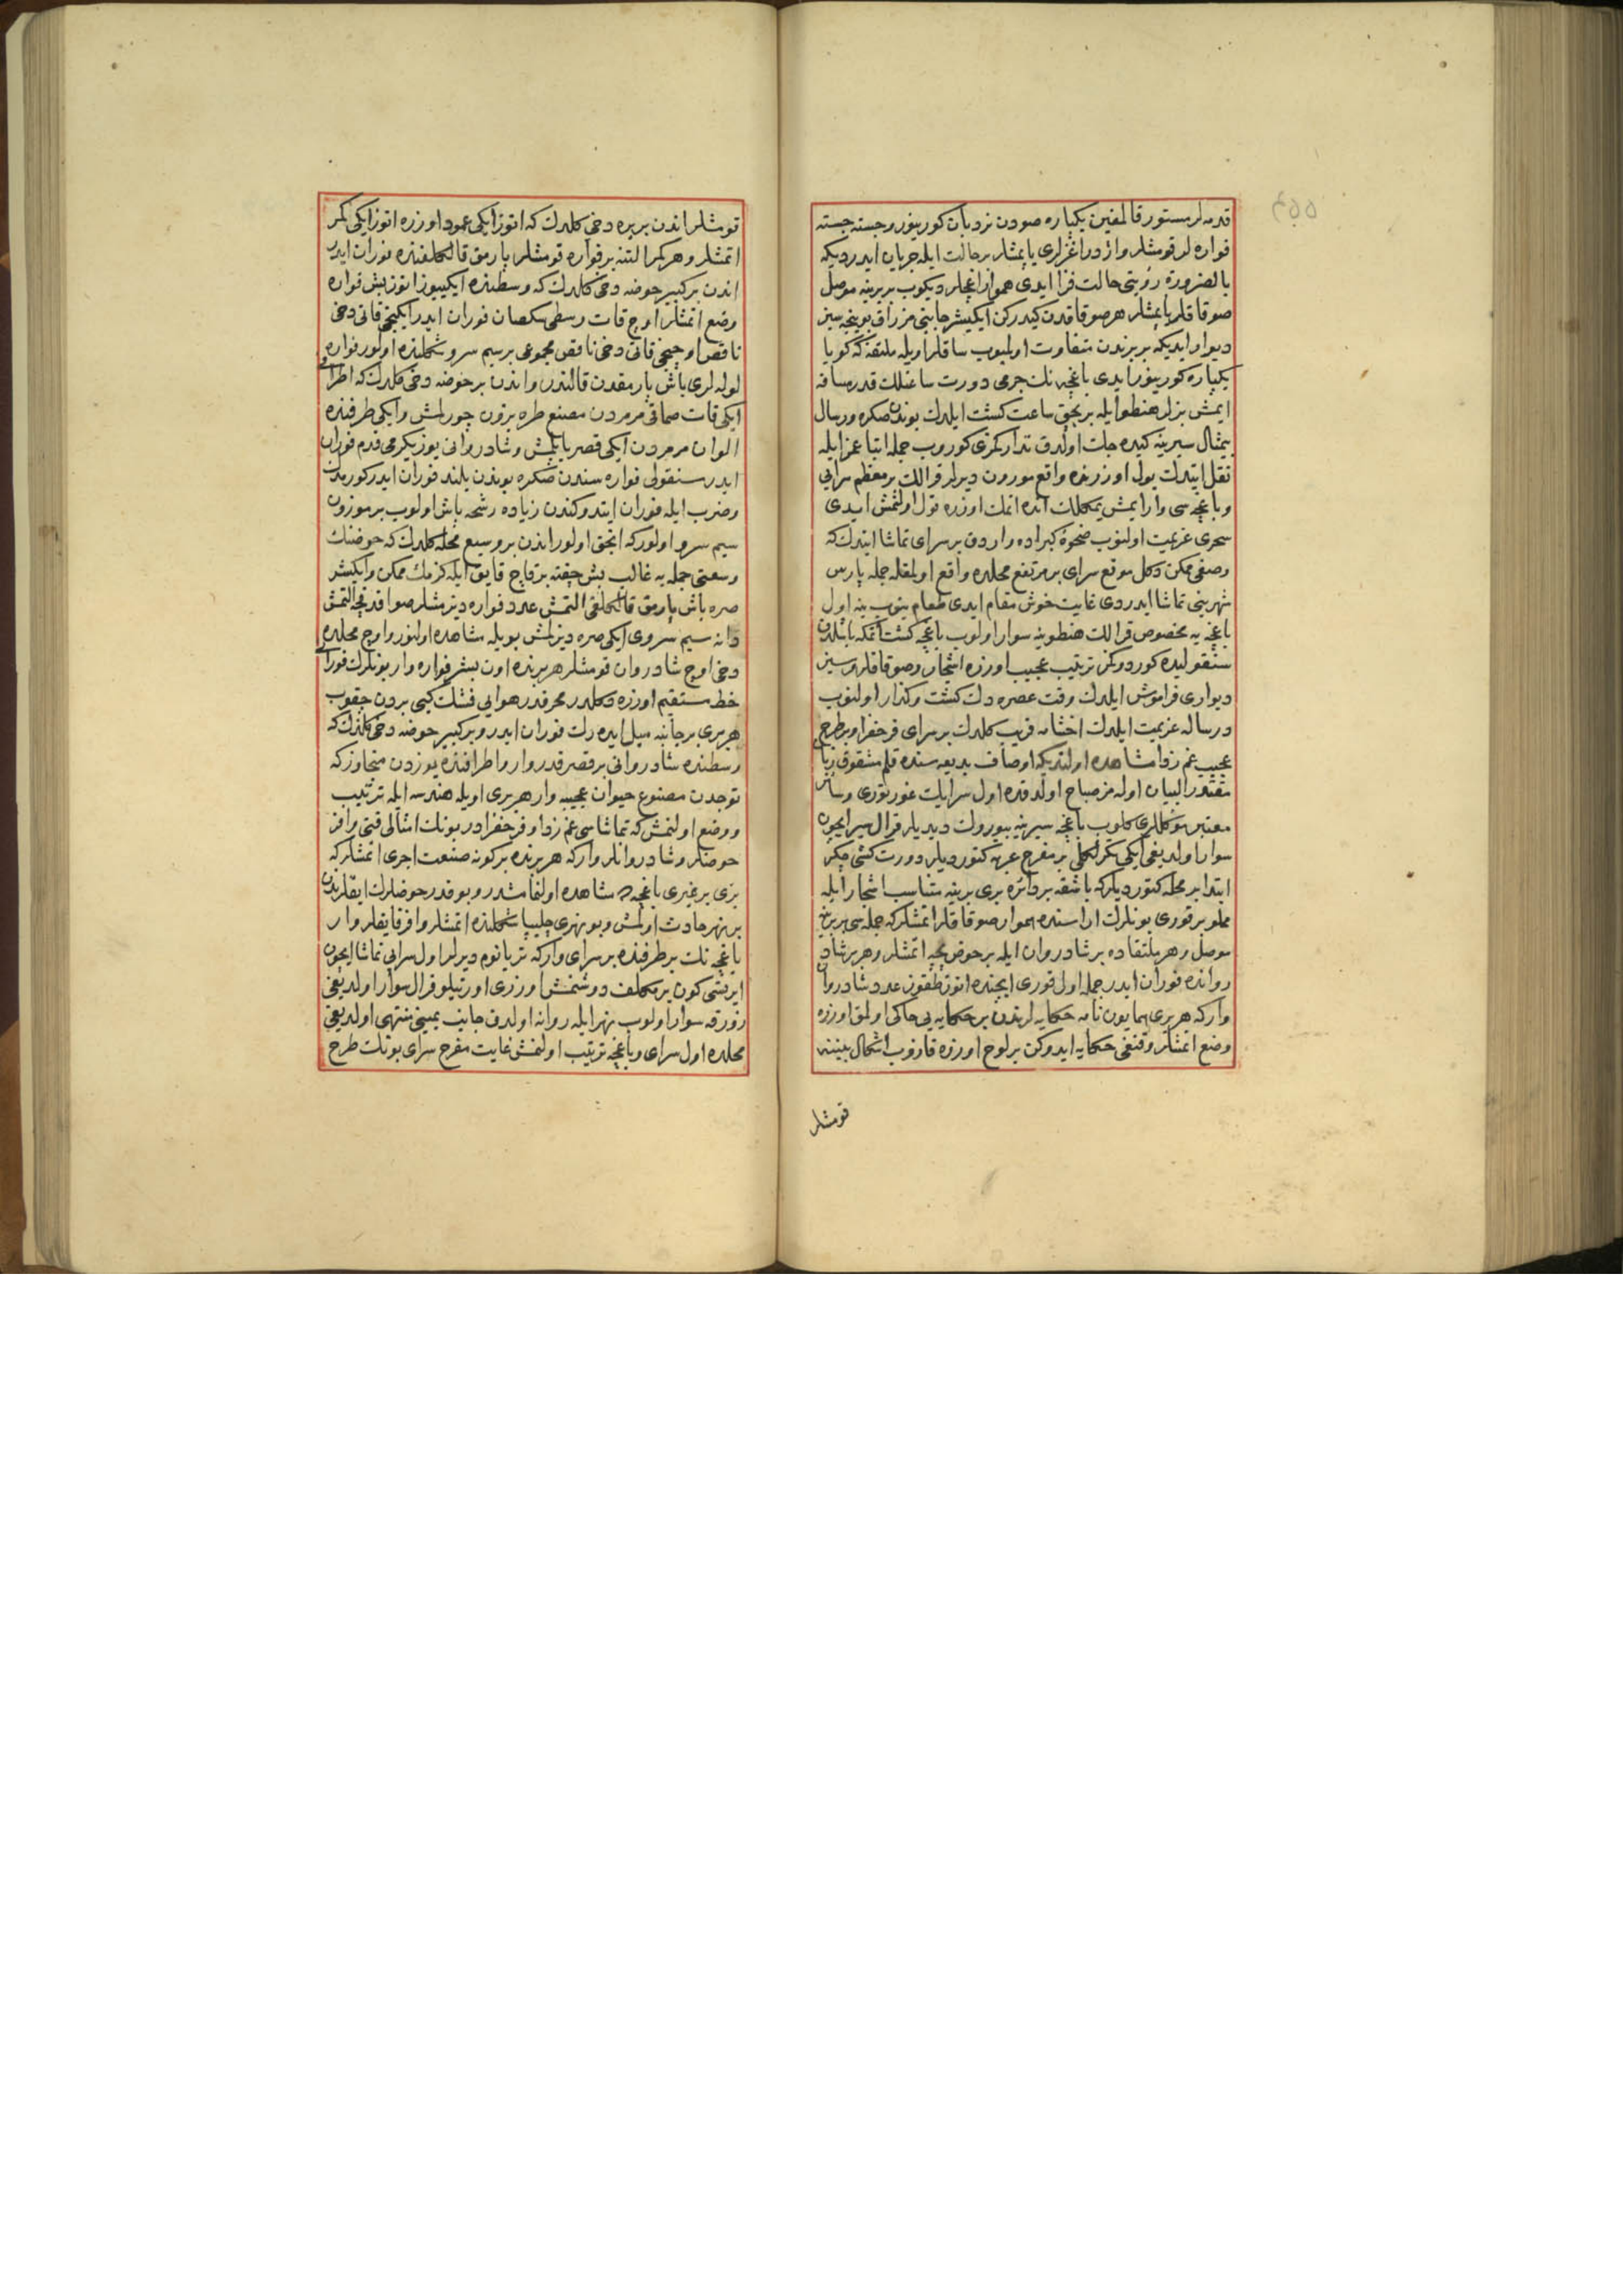 قدمه لر مستور قالمغين يكپاره صودن نردبان كورينور وجسته جسته
فواره لر قومشلر واژدر اغزلرى ياپمشلر بر حالت ايله جريان ايدر ديكه
بالضروره رؤيتى حالت فزا ايدى هموار اغچلر ديكوب بربرينه موصل
صوقاقلر ياپمشلر هر صوقاقدن كيدركن ايكيشر جانبى مزراق بوينجه سبز
ديوار ايديكه بربرندن متفاوت اولميوب ساقلر اويله ملتقه كه كويا
يكپاره كورينور ايدى باغچه نك جرمى دورت ساعتلك قدر مسافه
ايمش بزلر هنطو ايله بر بچق ساعت كشت ايلدك بوندن صكره ورسال
بيمثال سيرينه كيده جك اولدق تداركمزى كوروب جمله اتباعمز ايله
نقل ايتدك يول اوزرنده واقع مورون ديرلر قرالك بر معظم سرايى
وباغچه سى وار ايمش يمكلك انده اتمك اوزره قول اولنمش ايدى
سحرى عزيمت اولنوب ضحوۀ كبراده واردق بر سراى تماشا ايتدك كه
وصفى ممكن دكل موقع سراى بر مرتفع محلده واقع اولمغله جمله پارس
شهرينى تماشا ايدردى غايت خوش مقام ايدى طعام ينوب ينه اول
باغچه يه مخصوص قرالك هنطوينه سوار اولوب باغچه كشت اتمكه باشلدق
سنقولده كوردوكمز ترتيب عجيب اوزره اشجار وصوقاقلر سبز
ديوارى فراموش ايلدك وقت عصره دك كشت وكذار اولنوب
ورساله عزيمت ايلدك اخشامه قريب كلدك بر سراى فرحفزا وبر طرح
عجيب غم زدا مشاهده اولنديكه اوصاف بديعه سنده قلم مشقوق زبان
مقتدر البيان اوله مز صباح اولدقده اول سرايك غورنورى وساير
معتبر موكللرى كلوب باغچه سيرينه بيورك ديديلر قرال سير ايچون
سوار اولديغى ايكى تكرلكلى بر مفرح عربه كتورديلر دورت كشى چكر
ابتدا بر محله كتورديلر كه باشقه بر دائره برى برينه متناسب اشجار ايله
مملو بر قورى بونلرك اراسنده هموار صوقاقلر اتمشلر كه جمله سى بربرينه
موصل وهر ملتقاده بر شادروان ايله بر حوضچه اتمشلر وهر بر شاد
رواننده فوران ايدر جمله اول قورى ايچنده اتوز طقوز عدد شادروان
واركه هر برى همايون نامه حكايه لرندن بر حكايه يى حاكى اولمق اوزره
وضع اتمشلر وقنغى حكايه ايدوكن بر لوح اوزره قازوب اشكال بيننه
قومشلر
قومشلر اندن بر يره دخى كلدك كه اتوز ايكى عمود اوزره اتوز ايكى كمر
اتمشلر وهر كمر التنه بر فواره قومشلر پارمق قالكلغنده فوران ايدر
اندن بر كبير حوضه دخى كلدك كه وسطنده ايكييوز اتوز بش فواره
وضع اتمشلر اوچ قات وسطى سكسان فوران ايدر ايكنجى قاتى دخى
ناقص اوچنجى قاتى دخى ناقص مجموعى بر سيم سرو شكلنده اولور فواره
لوله لرى باش پارمقدن قالندر واندن بر حوضه دخى كلدك كه اطرافى
ايكى قات صماقى مرمردن مصنع طره بزون چورلمش وايكى طرفنده
الوان مرمردن ايكى قصر ياپلمش وشادروانى يوز يكرمى قدم فوران
ايدر سنقولى فواره سندن صكره بوندن بلند فوران ايدر كورمدك
وضرب ايله فوران ايتدوكندن زياده رشحه پاش اولوب بر موزون
سيم سرو اولور كه انجق اولور اندن بر وسيع محله كلدك كه حوضنك
وسعتى جمله يه غالب بش چفته بر قاچ قايق ايله كزمك ممكن وايكيشر
صره باش پارمق قالكلغى التمش عدد فواره ديزمشلر صو افدنجه التمش
دانه سيم سروى ايكى صره ديزلمش بويله مشاهده اولنور واوچ محلده
دخى اوچ شادروان قومشلر هر برنده اون بشر فواره وار بونلرك فورانى
خط مستقيم اوزره دكلدر محرقدر هوايى فشنك كبى بردن چقوب
هر برى بر جانبه ميل ايده رك فوران ايدر وبر كبير حوضه دخى كلدك كه
وسطنده شادروانى بر قصر قدر وار واطرافنده يوزدن متجاوز كه
توجدن مصنوع حيوان عجيبه وار هر برى اويله هندسه ايله ترتيب
ووضع اولنمش كه تماشاسى غم زدا وفرحفزادر بونك امثالى قتى وافر
حوضلر وشادروانلر واركه هر برنده بر كونه صنعت اجرى اتمشلر كه
برى بر غيرى باغچه ده مشاهده اولنمامشدر وبو قدر حوضلرك ايقلرندن
بر نهر حادث اولمش وبو نهرى چليپا شكلنده اتمشلر وافر قايقلر وار
باغچه نك بر طرفنده بر سراى واركه تريانوم ديرلر اول سرايى تماشا ايچون
ايرتسى كون بر مكلف دوشنمش اوزرى اورتيلو قرال سوار اولديغى
زورقه سوار اولوب نهر ايله روانه اولدق جانب يمينى منتهى اولديغى
محلده اول سراى وباغچه ترتيب اولنمش غايت مفرح سراى بونك طرح